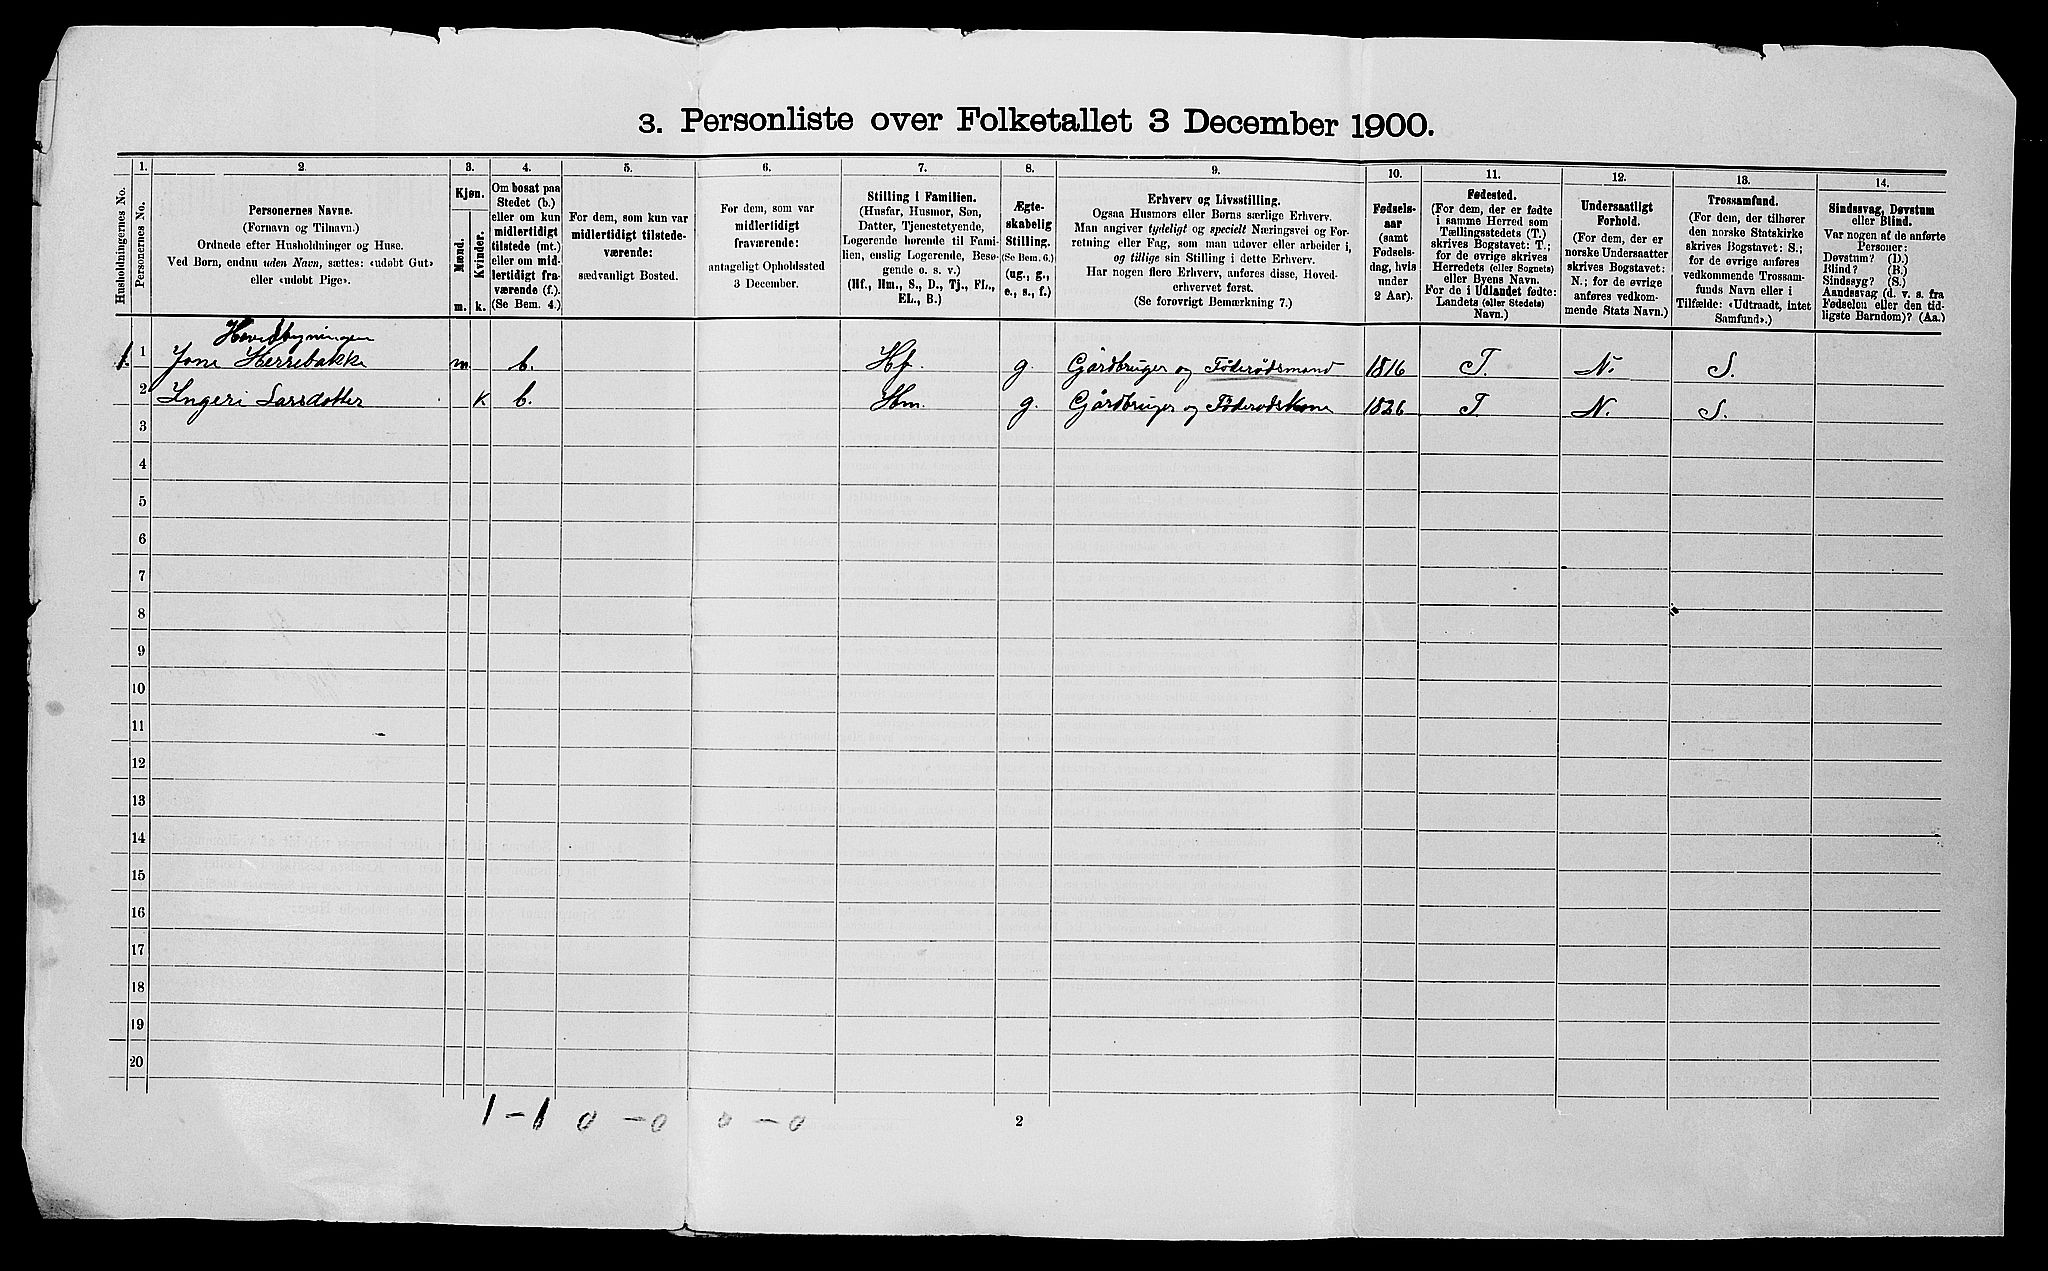 3. Personliste over Folketallet 3 December 1900.
Husholdningernes No.
1.
Personernes No.
2.
Personernes Navne.
(Fornavn og Tilnavn.)
Ordnede efter Husholdninger og Huse.
Ved Børn, endnu uden Navn, sættes: «udøbt Gut»
eller «udøbt Pige».
3.
Kjøn.
Mænd.
Kvinder.
m. k.
4.
Om bosat paa
Stedet (b.)
eller om kun
midlertidigt
tilstede (mt.)
eller om mid-
lertidigt fra-
værende (f.).
(Se Bem. 4.)
5.
For dem, som kun var
midlertidigt tilstede-
værende:
sædvanligt Bosted.
6.
For dem, som var
midlertidigt
fraværende:
antageligt Opholdssted
3 December.
7.
Stilling i Familien.
(Husfar, Husmor, Søn,
Datter, Tjenestetyende,
Logerende hørende til Fami-
lien, enslig Logerende, Besø-
gende o. s. v.)
(Hf., Hm., S., D., Tj., FL.,
EL., B.)
8.
Ægte-
skabelig
Stilling.
(Se Bem. 6.)
(ug., g.,
e., s., f.)
9.
Erhverv og Livsstilling.
Ogsaa Husmors eller Børns særlige Erhverv.
Man angiver tydeligt og specielt Næringsvei og For-
retning eller Fag, som man udøver eller arbeider i,
og tillige sin Stilling i dette Erhverv.
Har nogen flere Erhverv, anføres disse, Hoved-
erhvervet først.
(Se forøvrigt Bemærkning 7.)
10.
Fødsels-
aar
(samt
Fødsels-
dag, hvis
under
2 Aar).
11.
Fødested.
(For dem, der er fødte
i samme Herred som
Tællingsstedets (T.)
skrives Bogstavet: T.;
for de øvrige skrives
Herredets (eller Sognets)
eller Byens Navn.
For de i Udlandet fødte:
Landets (eller Stedets)
Navn.)
12.
Undersaatligt
Forhold.
(For dem, der er
norske Undersaatter
skrives Bogstavet:
N.; for de øvrige
anføres vedkom-
mende Stats Navn.)
13.
Trossamfund.
(For dem, der tilhører
den norske Statskirke
skrives Bogstavet: S.;
for de øvrige anføres
vedkommende Trossam-
funds Navn eller i
Tilfælde: «Udtraadt, intet
Samfund».)
14.
Sindssvag, Døvstum
eller Blind.
Var nogen af de anførte
Personer:
Døvstum? (D.)
Blind? (B.)
Sindssyg? (S.)
Aandssvag (d. v. s. fra
Fødselen eller den tid-
ligste Barndom)? (Aa.)
Hovedbygningen
1. 1 Jone Herrebakke m b. Hf g. Gårdbruger og Føderådsmand 1816 T. N. S.
2 Ingeri Larsdatter k b. Hm. g. Gårdbruger og Føderådskone 1826 T N. S.
3
4
5
6
7
8
9
10
11
12
13
14
15
16
17
18
19
20
1 - 1 0 - 0 0 - 0 2